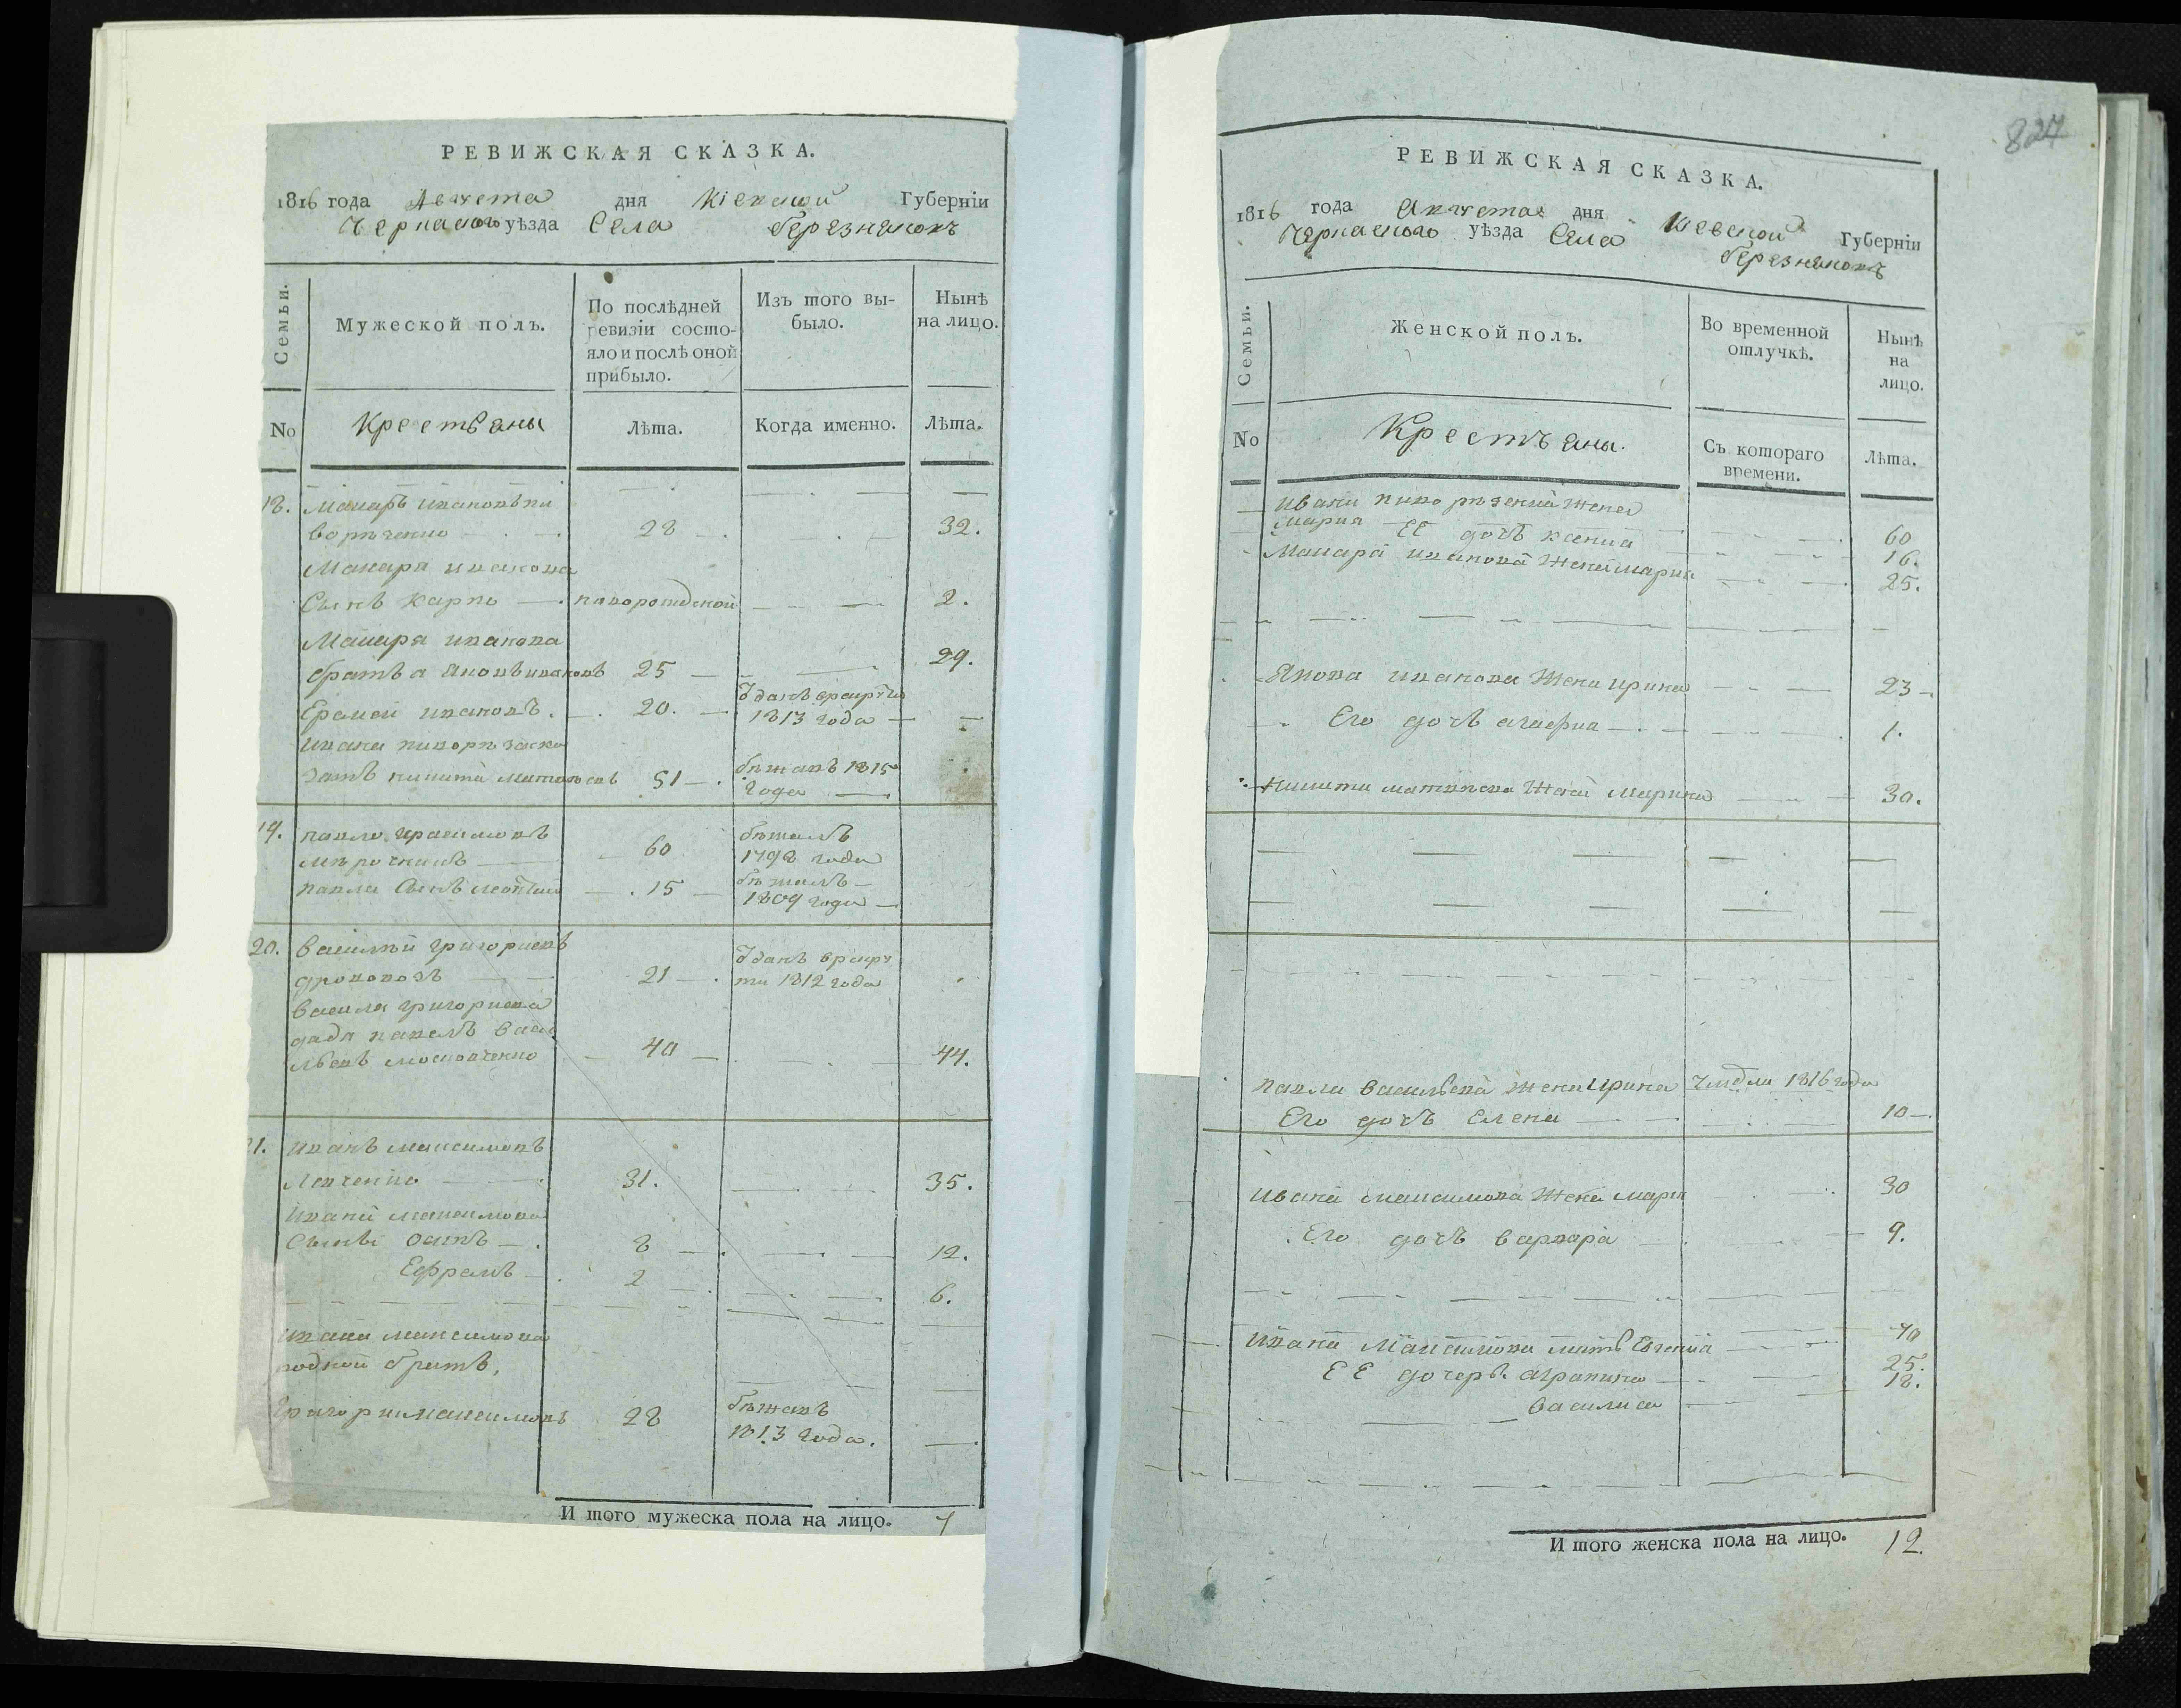 РЕВИЖСКАЯ СКАЗКА.
1816 года Августа дня Кіевской Губерніи
Черкаского уѣзда Села Березняковъ
Семьи.
Мужеской полъ.
По послѣдней ревизіи состо-
яло и послѣ оной
прибыло.
Изъ того вы-
было.
Нынѣ
на лицо.
No
Крестьяны
Лѣта.
Когда именно.
Лѣта.
18. Макаръ Ивановъ
28 32.
Макара Иванова
Сынъ Карпо новорожденой 2.
Макара Иванова
братья Яковъ Ивановъ 25 29.
Еремей Ивановъ. 20. Зданъ врекруты
1813 года
Ивана
зять Никита Матвѣевъ 51 бѣжавъ 1815
года
19. Павло Герасимовъ
60 бѣжалъ
1798 года
Павла Сынъ Леонтий 15 бѣжалъ
1809 года
20. Василий Григориевъ
дрововозъ 21 Зданъ врекру
ти 1812 года
Василя Григориева
дядя Павелъ Васи
льевъ 40 44.
21. Иванъ Максимовъ
Левченко 31. 35.
Ивана Максимова
Сынѣ Осипъ 8 12.
Ефремъ 2 6.
Ивана Максимова
родной братъ,
Григори Максимовъ 28 бѣжавъ
1813 года.
И того мужеска пола на лицо. 7
827
РЕВИЖСКАЯ СКАЗКА.
1816 года Августа дня Киевской Губерніи
Черкаского уѣзда Села Березняковъ
Семьи.
Женской полъ.
Во временной
отлучкѣ.
Нынѣ
на
лицо.
No
Крестъяны.
Съ котораго
времени.
Лѣта.
Ивана жена
Мария 60
ЕЕ дочь Ксения 16.
Макара Иванова Жена Мария 25.
Якова Иванова Жена Ирина 23
Его дочь Агафия 1.
Никити Матвѣева Жена Марина 30.
Павла Васильева жена Ирина 1816 года
Его дочь Елена 10
Ивана Максимова Жена Мария 30
Его дочь Варвара 9.
Ивана Максимова мать Евгения 70
ЕЕ дочерѣ Агрипина 25.
Василиса 18.
И того женска пола на лицо. 12.